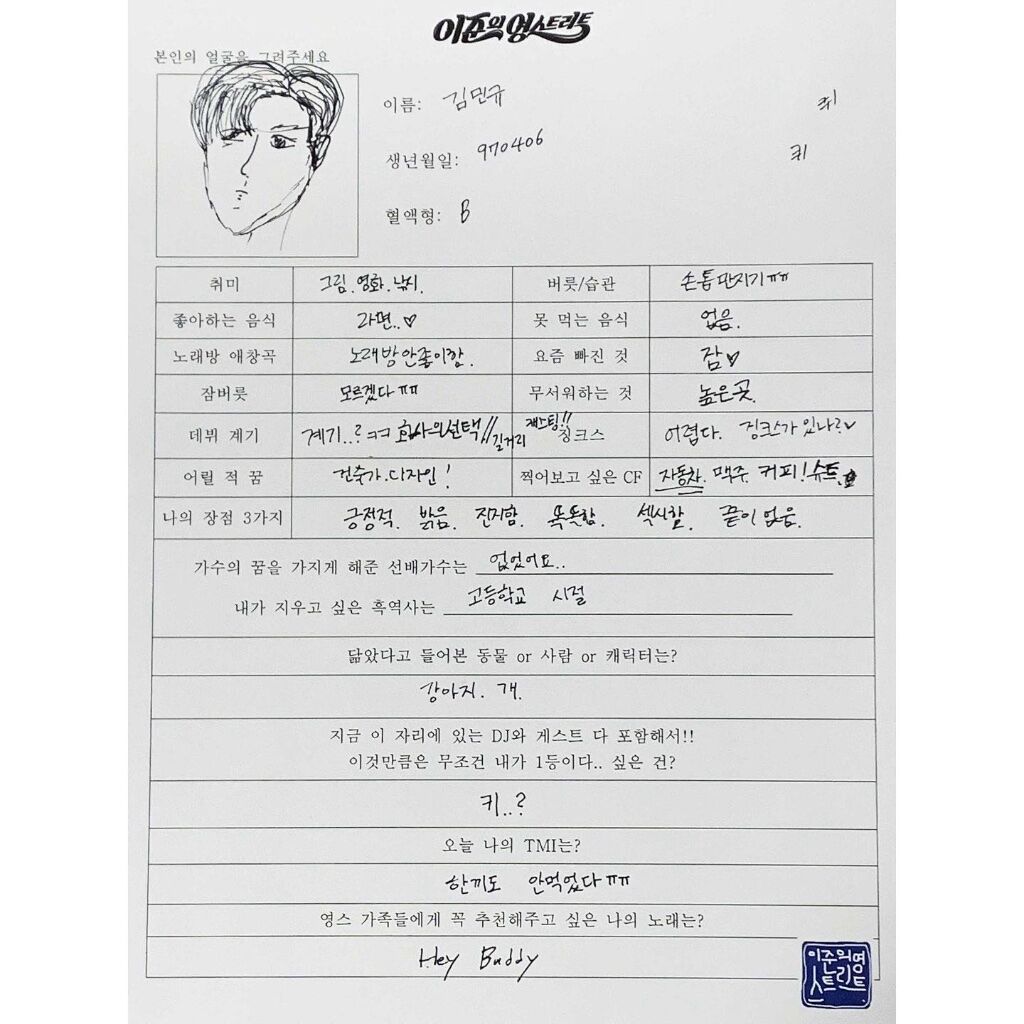 이준의영스트리트
본인의 얼굴을 그려주세요
이름: 김민규
생년월일: 970406
키
혈액형: B
취미 그림. 영화. 낚시. 버릇/습관 손톱만지기ㅠㅠ
좋아하는 음식 라면..♡ 못 먹는 음식 없음.
노래방 애창곡 노래방안좋아함. 요즘 빠진 것 잠♡
잠버릇 모르겠다ㅠㅠ 무서워하는 것 높은곳.
데뷔 계기 계기..? ㅋㅋ 회사의선택// 길거리 캐스팅!! 징크스 어렵다. 징크스가 있나?♡
어릴 적 꿈 건축가. 디자인! 찍어보고 싶은 CF 자동차. 맥주. 커피! 슈트.
나의 장점 3가지 긍정적. 밝음. 진지함. 똑똑함. 섹시함. 끝이 없음.
가수의 꿈을 가지게 해준 선배가수는 없었어요..
내가 지우고 싶은 흑역사는 고등학교 시절
닮았다고 들어본 동물 or 사람 or 캐릭터는?
강아지. 개.
지금 이 자리에 있는 DJ와 게스트 다 포함해서!!
이것만큼은 무조건 내가 1등이다.. 싶은 건?
키..?
오늘 나의 TMI는?
한끼도 안먹었다ㅠㅠ
영스 가족들에게 꼭 추천해주고 싶은 나의 노래는?
Hey Buddy
이준의영
스트리트